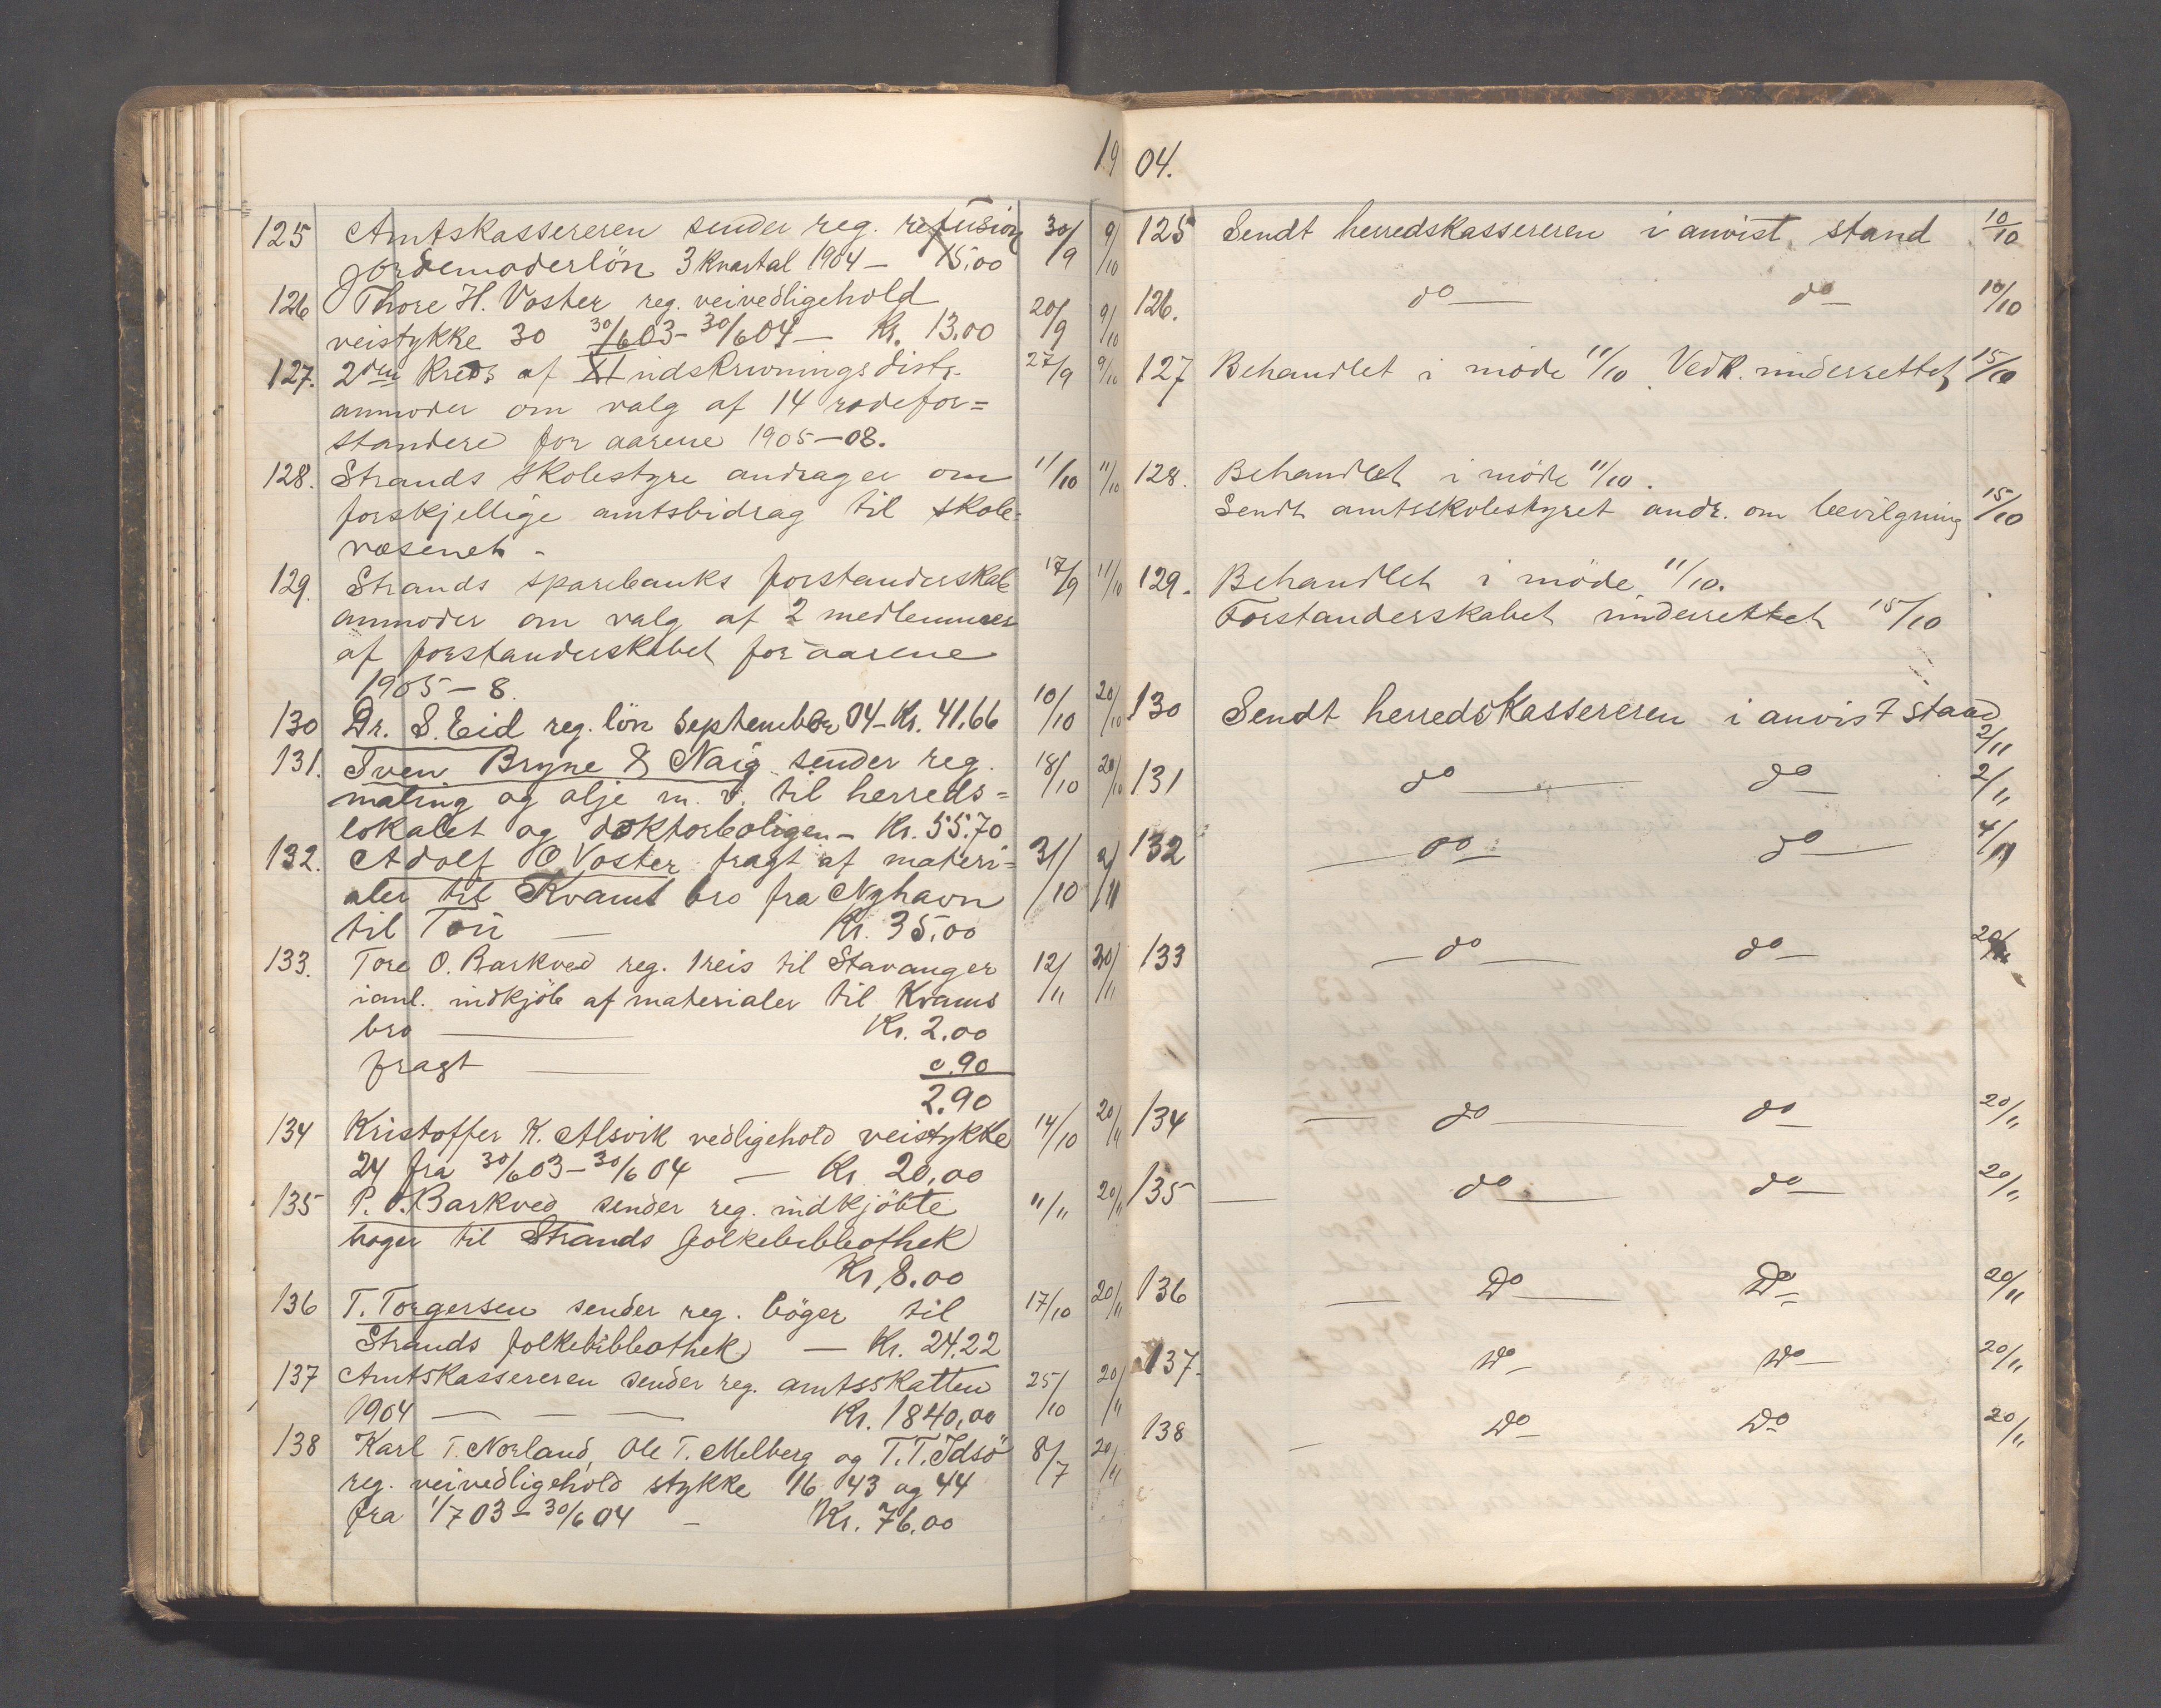 1904.
125 Amtskassereren sender reg. refusion 30/9 9/10
Jordemoderlön 3 kvartal 1904 — 15.00
126 Thore H. Voster reg. veivedligehold 20/9 9/10
veistykke 30 30/6 03 - 30/6 04 — Kr. 13.00
127. 2den Kreds af XI indskrivningsdistr. 27/9 9/10
anmoder om valg af 14 rodefor=
standere for aarene 1905-08.
128. Strands skolestyre andrager om 11/10 11/10
forskjellige amtsbidrag til skole-
væsenet -
129. Strands sparebanks forstanderskab 17/9 11/10
anmoder om valg af 2 medlemmer
af forstanderskabet for aarene
1905-8.
130 Dr. S. Eid reg. lön September 04 - Kr. 41.66 10/10 20/10
131. Sven Bryne & Naig sender reg. 18/10 20/10
maling og olje m. v. til herreds=
lokalet og doktorboligen - Kr. 55.70
132. Adolf O Voster fragt af materi= 31/10 2/11
aler til Kvams bro fra Nyhavn
til Tou — Kr. 35.00
133. Tore O. Barkved reg. 1 reis til Stavanger 12/11 20/11
ianl. indkjöb af materialer til Kvams
bro — Kr. 2.00
fragt — 0.90
2.90
134 Kristoffer K. Alsvik vedligehold veistykke 14/10 20/11
24 fra 30/6 03 - 30/6 04 — Kr 20.00
135 P. O. Barkved sender reg. indkjöbte 11/11 20/11
boger til Strands folkebibliothek
Kr. 8.00
136 T. Torgersen sender reg. böger til 17/10 20/11
Strands folkebibliothek — Kr. 24.22
137 Amtskassereren sender reg. amtsskatten 25/10 20/11
1904 — — — Kr. 1840,00
138 Karl T. Norland, Ole T. Melberg og T. T. Idsö 8/7 20/11
reg. veivedligehold stykke 16 43 og 44
fra 1/7 03 - 30/6 04 - Kr. 76.00
125 Sendt herredskassereren i anvist stand 10/10
126. do — do — 10/10
127 Behandlet i möde 11/10. Vedk. underrettet 15/10
128. Behandlet i möde 11/10.
Sendt amtsskolestyret andr. om bevilgning 15/10
129. Behandlet i möde 11/10.
Forstanderskabet underrettet 15/10
130 Sendt herredskassereren i anvist stand
2/11
131 do — do — 2/11
132 — do — do — 4/11
133 — do — do — 20/11
134 — do — do — 20/11
135 — do — do — 20/11
136 — Do — Do — 20/11
137. Do — Do — 20/11
138 — Do — Do 20/11